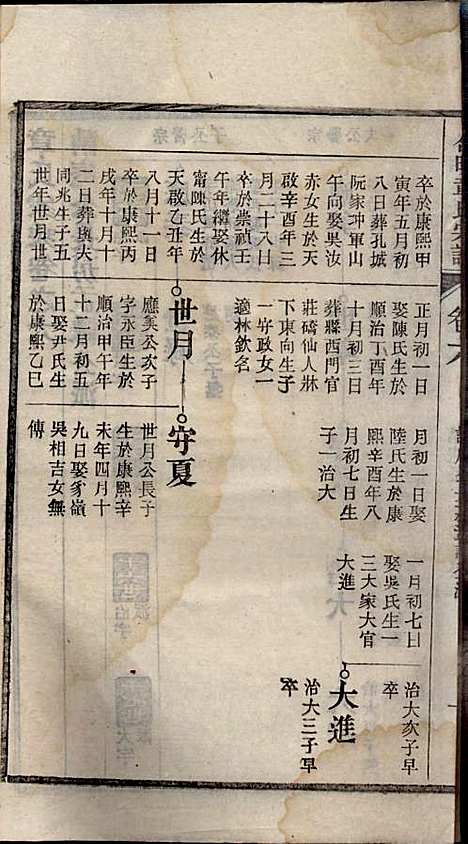 卒於康熙甲
寅年五月初
八日葬孔城
阮家坤軍山
午向娶吳汝
赤女生於天
啟辛酉年三
月二十八日
卒於崇禎壬
午年繼娶休
甯陳氏生於
天啟乙丑年
八月十一日
卒於康熙丙
戌年十月十
二日葬與夫
同兆生子五
世年世月世
正月初一日
娶陳氏生於
順治丁酉年
十月初三日
葬縣西門官
莊磚仙人牀
下東向生子
一守政女一
適林欽名
世月
應美公次子
字永臣生於
順治甲午年
十二月初五
日娶尹氏生
於康熙乙巳
月初一日娶
陸氏生於康
熙辛酉年八
月初七日生
子一治大
守夏
世月公長子
生於康熙辛
未年四月十
九日娶豸嶺
吳相吉女無
傳
一月初七日
娶吳氏生一
三大家大官
大進
治大次子早
卒
大進
治大三子早
卒